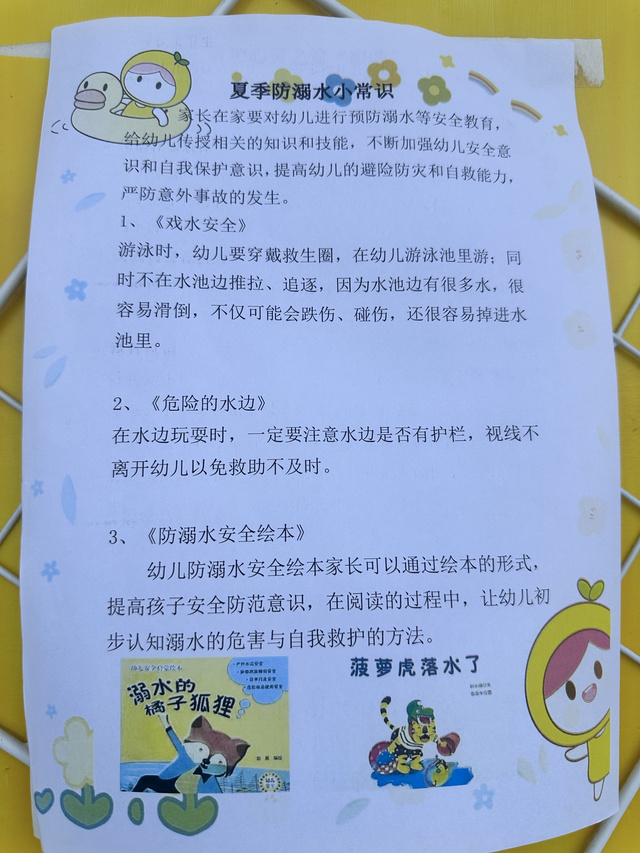 夏季防溺水小常识
家长在家要对幼儿进行预防溺水等安全教育，
给幼儿传授相关的知识和技能，不断加强幼儿安全意
识和自我保护意识，提高幼儿的避险防灾和自救能力，
严防意外事故的发生。
1、《戏水安全》
游泳时，幼儿要穿戴救生圈，在幼儿游泳池里游；同
时不在水池边推拉、追逐，因为水池边有很多水，很
容易滑倒，不仅可能会跌伤、碰伤，还很容易掉进水
池里。
2、《危险的水边》
在水边玩耍时，一定要注意水边是否有护栏，视线不
离开幼儿以免救助不及时。
3、《防溺水安全绘本》
幼儿防溺水安全绘本家长可以通过绘本的形式，
提高孩子安全防范意识，在阅读的过程中，让幼儿初
步认知溺水的危害与自我救护的方法。
溺水的
橘子狐狸
菠萝虎落水了